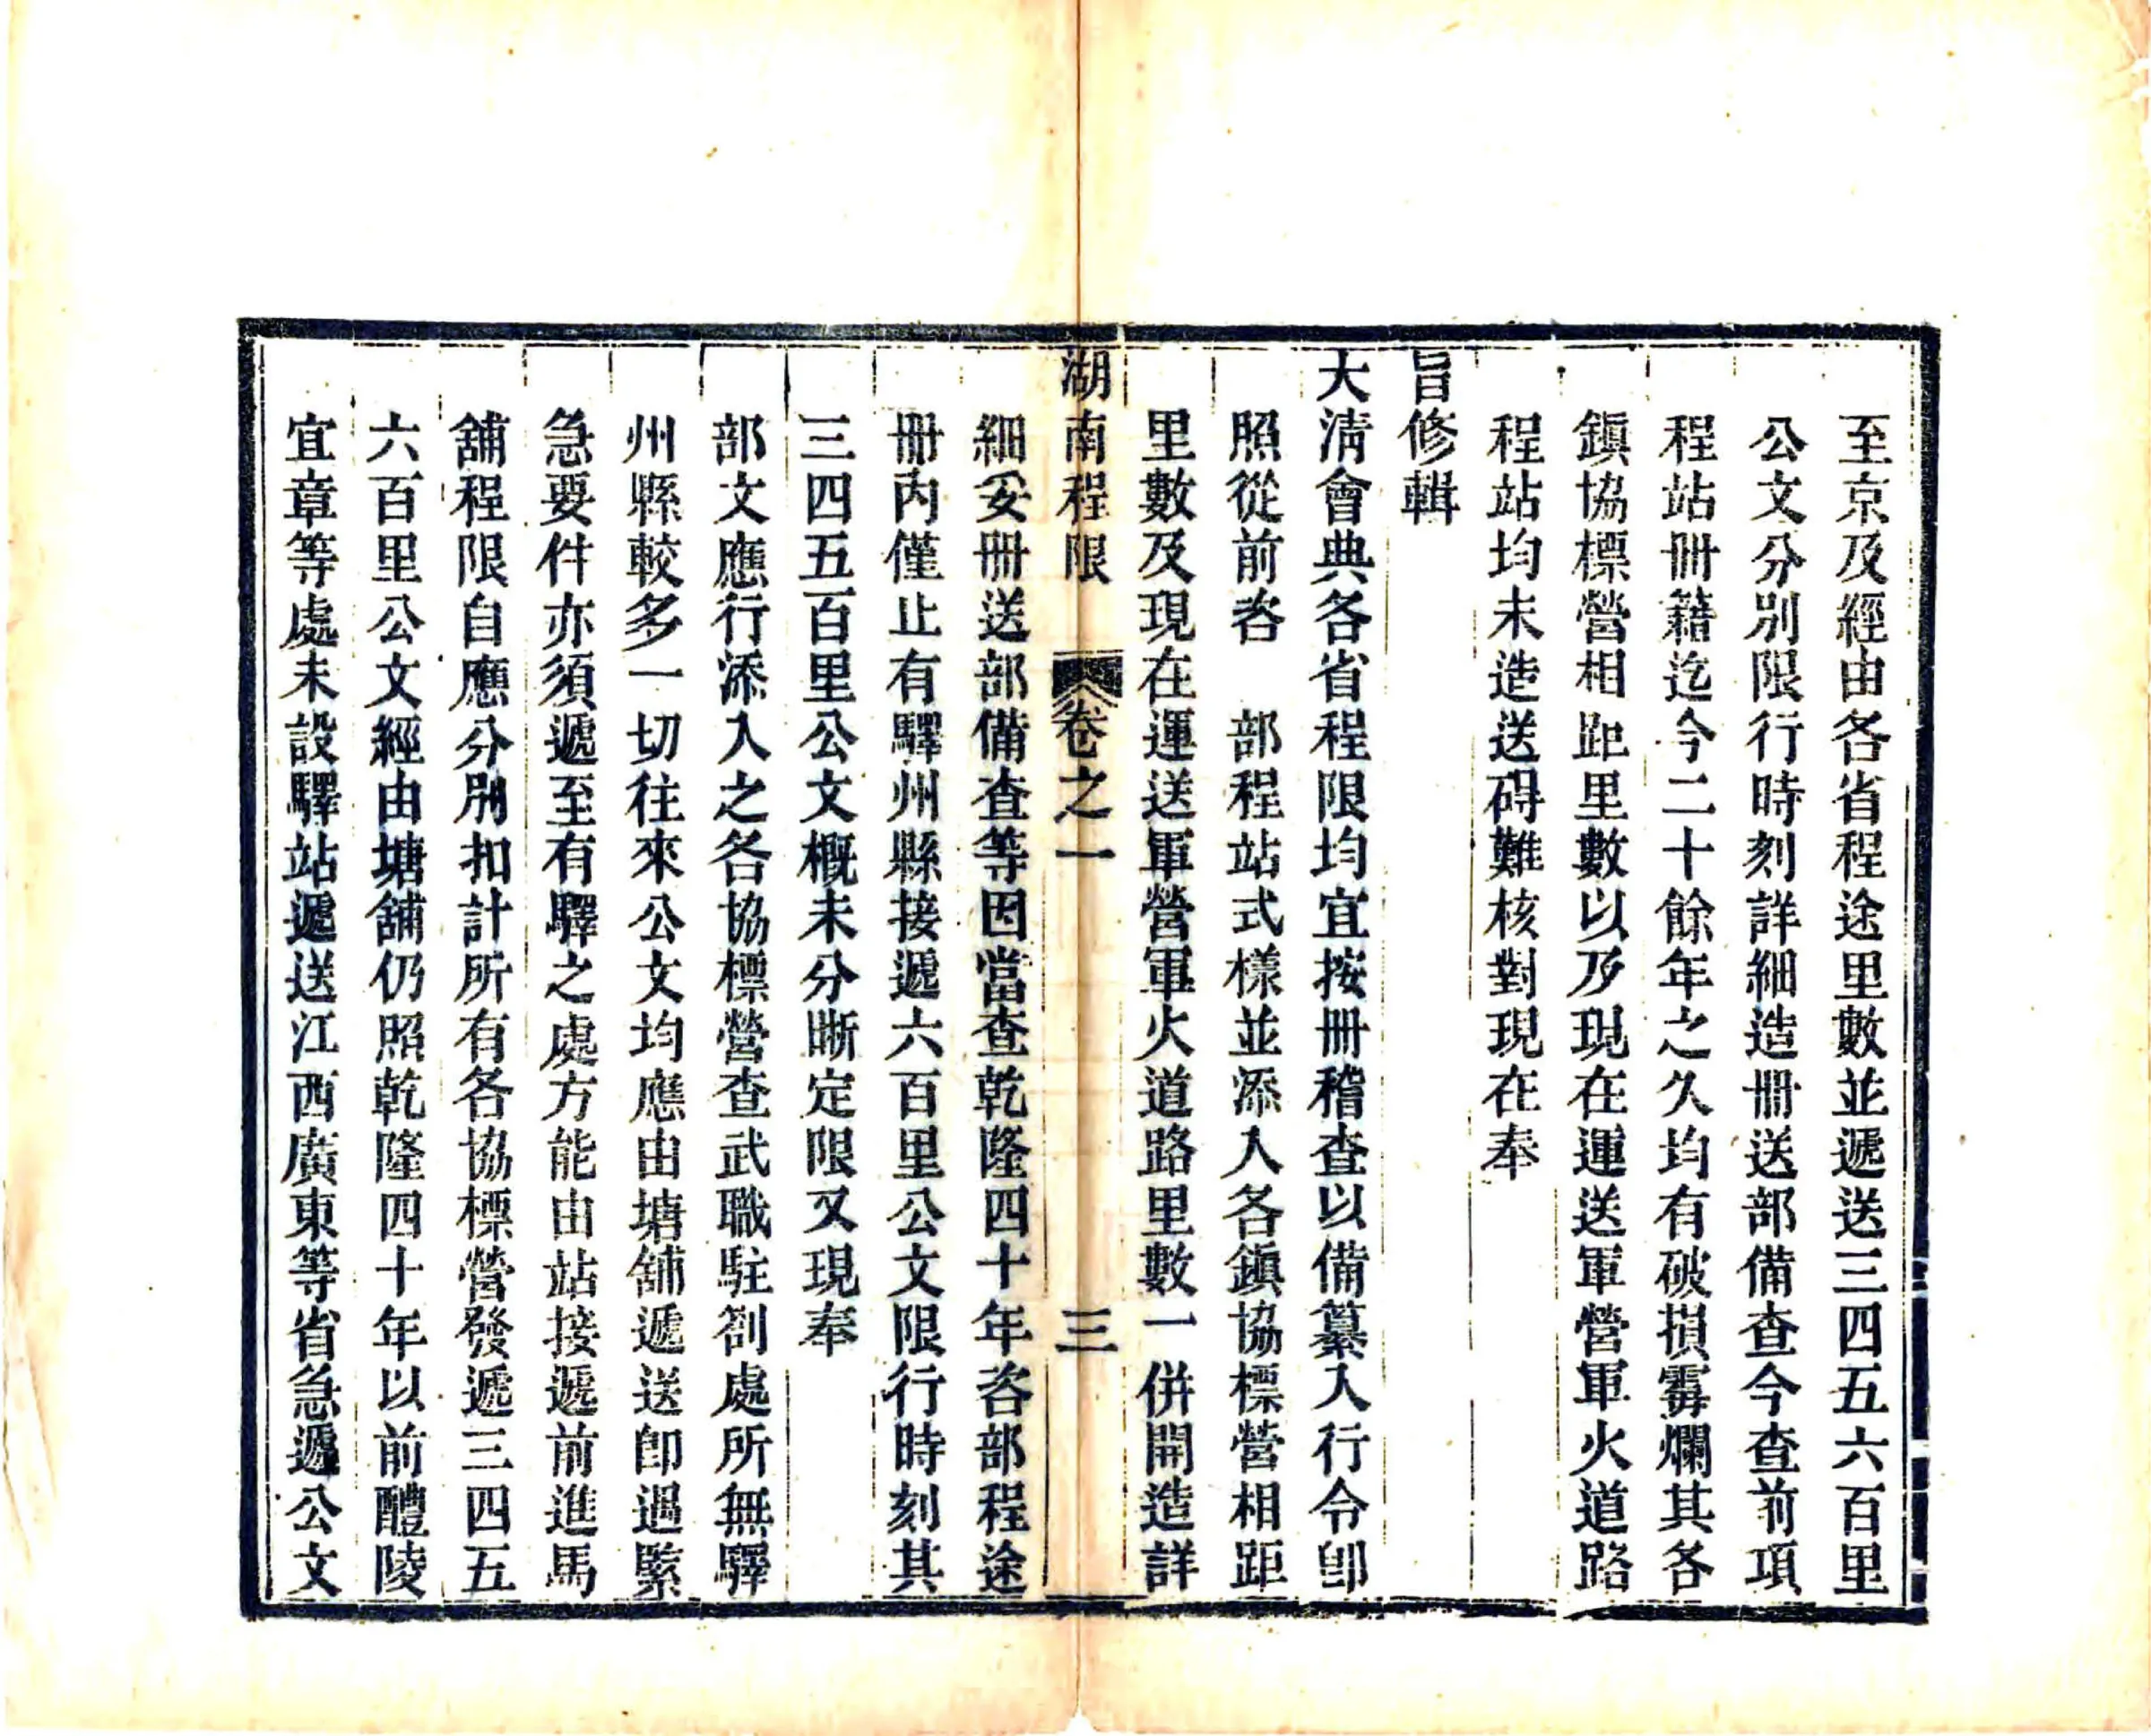 至京及經由各省程途里數並遞送三四五六百里
公文分别限行時刻詳細造冊送部備查今查前項
程站冊籍迄今二十餘年之久均有破損霉爛其各
鎭協標營相距里數以及現在運送軍營軍火道路
程站均未造送碍難核對現在奉
旨修輯
大淸會典各省程限均宜按冊稽查以備纂入行令卽
照從前咨　部程站式樣並添入各鎭協標營相距
里數及現在運送軍營軍火道路里數一併開造詳
湖南程限　卷之一　三
細妥冊送部備查等因當查乾隆四十年咨部程途
冊內僅止有驛州縣接遞六百里公文限行時刻其
三四五百里公文槪未分晰定限又現奉
部文應行添入之各協標營查武職駐劄處所無驛
州縣較多一切往來公文均應由塘舖遞送卽遇緊
急要件亦須遞至有驛之處方能由站接遞前進馬
舖程限自應分別扣計所有各協標營發遞三四五
六百里公文經由塘舖仍照乾隆四十年以前醴陵
宜章等處未設驛站遞送江西廣東等省急遞公文